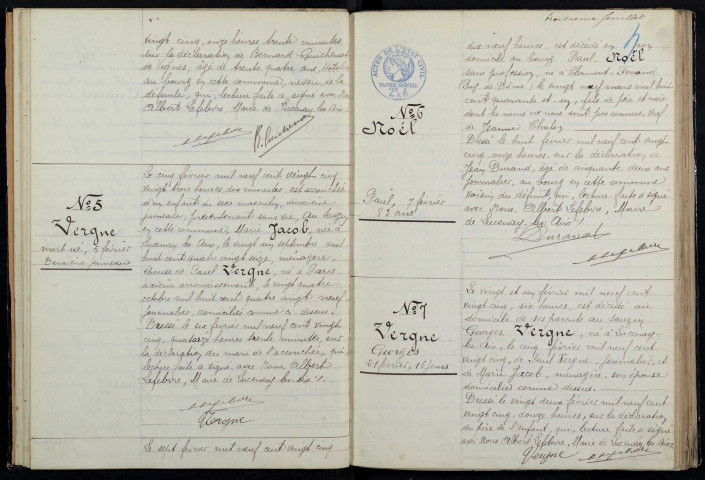 vingt cinq, onze heures trente minutes
sur la déclaration de Bernard Guichenot
âgé de trente quatre ans,
au bourg en cette commune, neveu de la
défunte, qui, lecture faite a signé avec Nous
Albert Lefebvre, Maire de Lucenay les Aix
B. Guichenot
N°5
Vergne
mort né, 5 février
Deuxième jumeau
Le cinq février mil neuf cent vingt cinq
vingt trois heures dix minutes est accouchée
d'un enfant du sexe masculin, deuxième
jumeau, présentement sans vie, au Sauzin
en cette commune, Marie Jacob, née à
Lucenay les Aix, le vingt un septembre mil
huit cent quatre vingt seize, ménagère,
épouse de Paul Vergne, né à Paris
sixième arrondissement, le vingt quatre
octobre mil huit cent quatre vingt neuf
journalier, domiciliés comme ci-dessus.
Dressé le six février mil neuf cent vingt
cinq, quatorze heures trente minutes, sur
la déclaration du mari de l'accouchée, qui
lecture faite a signé avec Nous Albert
Lefebvre, Maire de Lucenay les Aix
Vergne
Le sept février mil neuf cent vingt cinq
troisième feuillet
dix neuf heures, est décédé en son
domicile au bourg Paul Noël
sans profession, né à Clermont-Ferrand
(Puy de Dôme) le vingt neuf mars mil huit
cent quarante et un, fils de père et mère
dont les noms ne nous sont pas connus. Veuf
de Jeanne
Dressé le huit février mil neuf cent vingt
cinq, onze heures, sur la déclaration de
Jean Durand, âgé de cinquante deux ans
journalier, au bourg en cette commune
voisin du défunt, qui, lecture faite a signé
avec Nous, Albert Lefebvre, Maire
de Lucenay les Aix
Durand
ACTES DE L'ETAT CIVIL
PAPIER SPECIAL
N°6
Noël
Paul, 7 février
83 ans
N°7
Vergne
Georges
21 février, 16 jours
Le vingt et un février mil neuf cent
vingt cinq, six heures, est décédé au
domicile de ses parents au Sauzin
Georges Vergne, né à Lucenay-
les-Aix, le cinq février mil neuf cent
vingt cinq, de Paul Vergne, journalier, et
de Marie Jacob, ménagère, son épouse
domiciliés comme dessus.
Dressé le vingt deux février mil neuf cent
vingt cinq, douze heures, sur la déclaration
du père de l'enfant, qui, lecture faite a signé
avec Nous Albert Lefebvre, Maire de Lucenay les Aix
Vergne